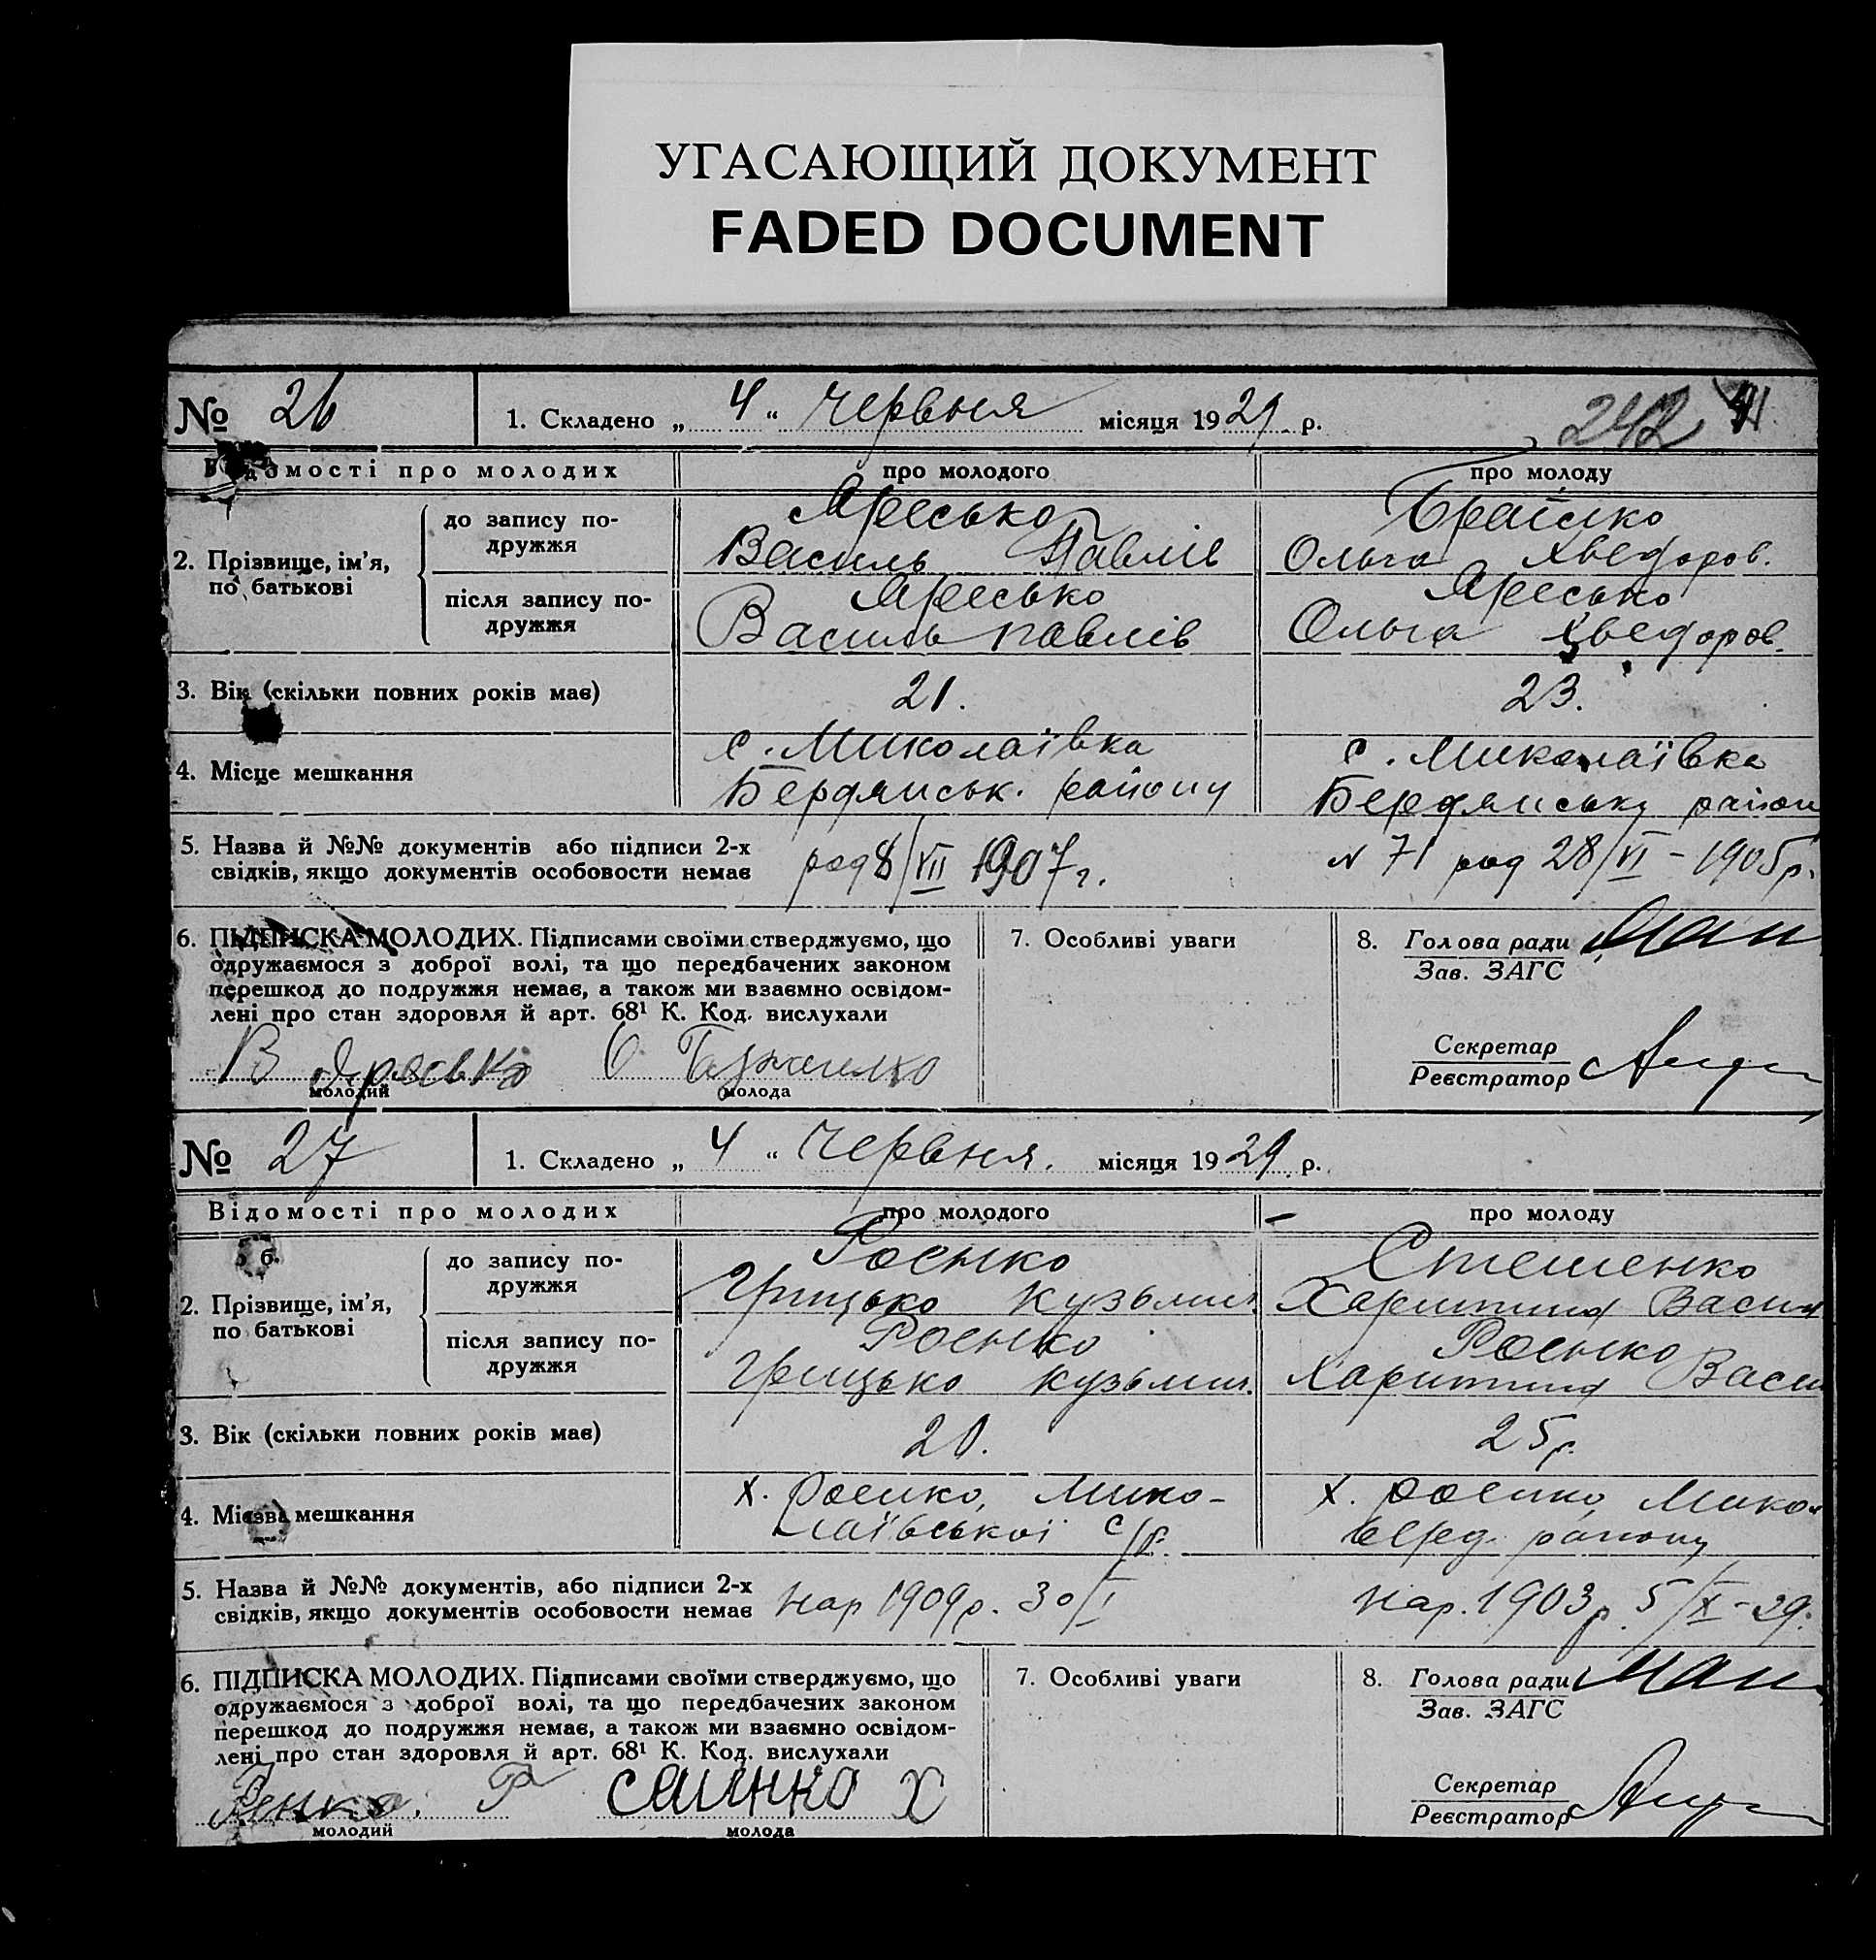 УГАСАЮЩИЙ ДОКУМЕНТ
FADED DOCUMENT
№ 26
1. Складено „ 4 “ червня місяця 1929 р.
242
Відомості про молодих
про молодого
про молоду
2. Прізвище, ім'я, по батькові
до запису подружжя
Яресько
Василь Павлів
Ольга Хведоров.
після запису подружжя
Яресько
Василь Павлів
Яресько
Ольга Хведоров.
3. Вік (скільки повних років має)
21.
23.
4. Місце мешкання
с. Миколаївка
Бердянськ. району
с. Миколаївка
Бердянську район
5. Назва й №№ документів або підписи 2-х
свідків, якщо документів особовости немає
род 8/VII 1907 г.
N 71 род 28/VI - 1905 р.
6. ПІДПИСКА МОЛОДИХ. Підписами своїми стверджуємо, що
одружаємося з доброї волі, та що передбачених законом
перешкод до подружжя немає, а також ми взаємно освідом-
лені про стан здоровля й арт. 68¹ К. Код. вислухали
В Яресько О
молодий
молода
7. Особливі уваги
8. Голова ради
Зав. ЗАГС
Секретар
Реєстратор
№ 27
1. Складено „ 4 “ Червня. місяця 1929 р.
Відомості про молодих
про молодого
про молоду
2. Прізвище, ім'я, по батькові
до запису подружжя
Роенко
Грицько Кузьмич.
Стешенко
Харитина Васил
після запису подружжя
Роенко
Грицько Кузьмич.
Роенко
Харитина Васи
3. Вік (скільки повних років має)
20.
25 р.
4. Місце мешкання
х. Роенко, Мико-
лаївської с/р.
х. Роенко Микол
району
5. Назва й №№ документів, або підписи 2-х
свідків, якщо документів особовости немає
нар 1909 р. 30/I
нар. 1903 р. 5/X - 29.
6. ПІДПИСКА МОЛОДИХ. Підписами своїми стверджуємо, що
одружаємося з доброї волі, та що передбачених законом
перешкод до подружжя немає, а також ми взаємно освідом-
лені про стан здоровля й арт. 68¹ К. Код. вислухали
молодий
Х
молода
7. Особливі уваги
8. Голова ради
Зав. ЗАГС
Секретар
Реєстратор